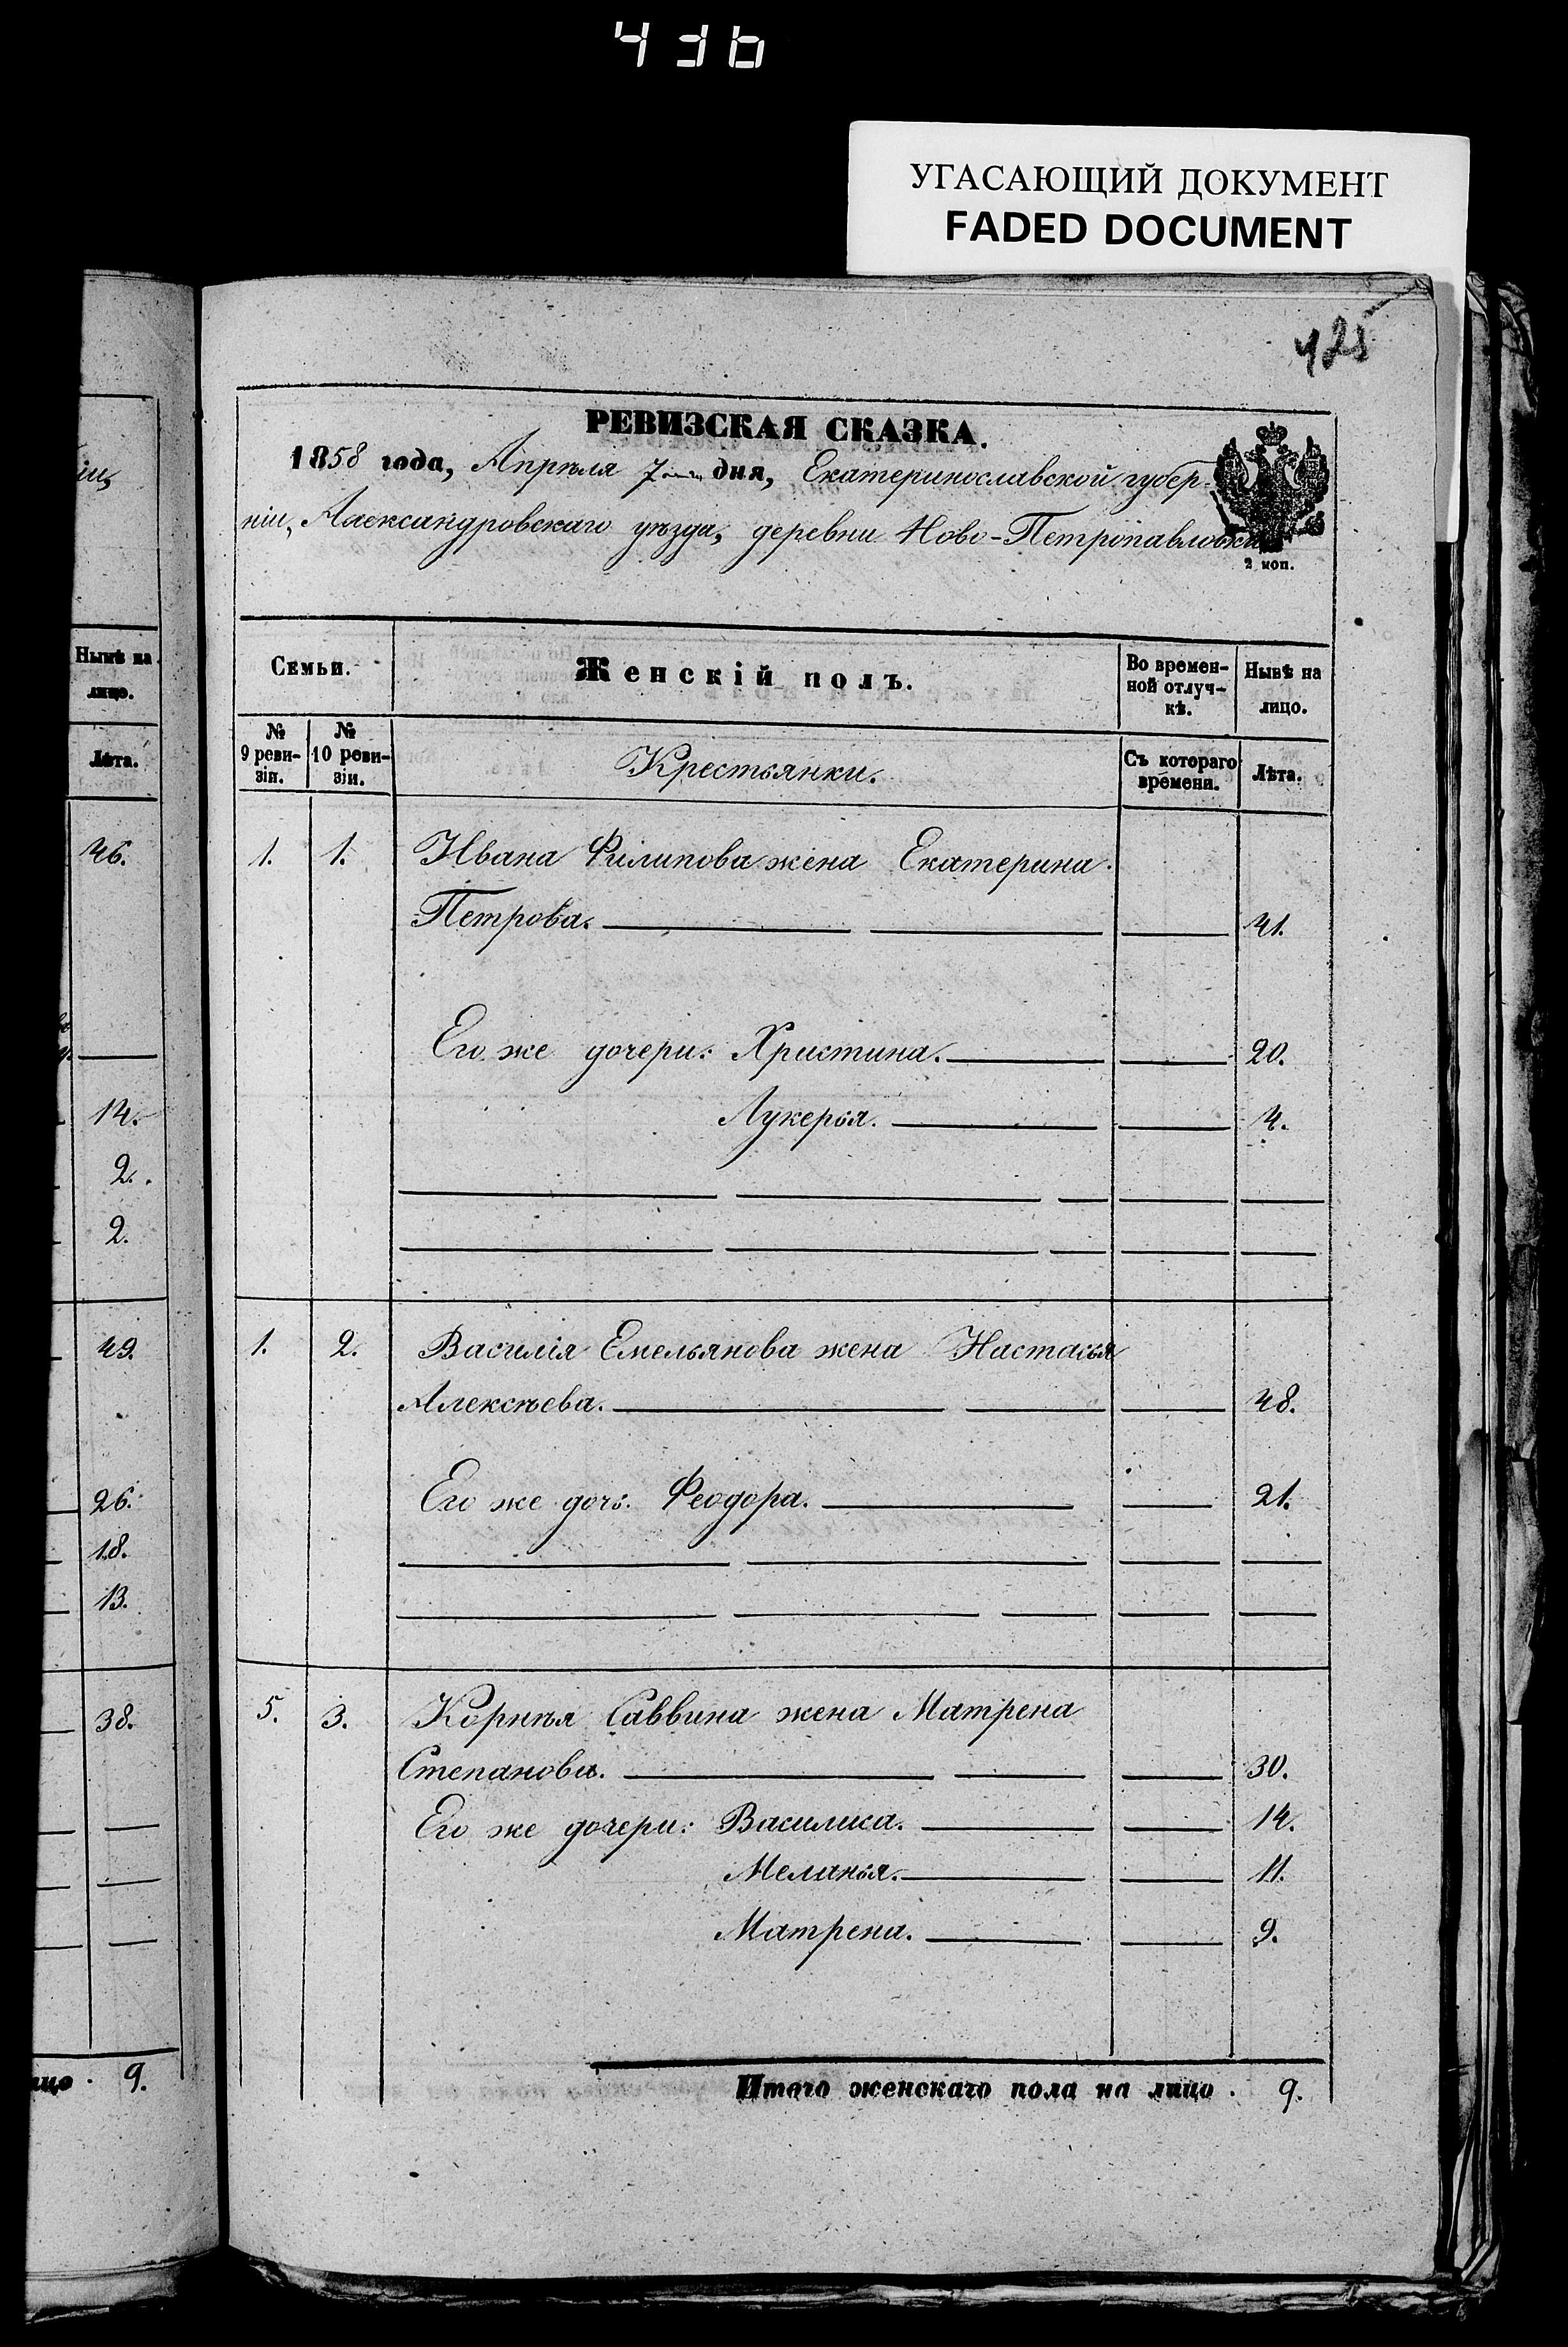 436
УГАСАЮЩИЙ ДОКУМЕНТ
FADED DOCUMENT
425
РЕВИЗСКАЯ СКАЗКА.
1858 года, Апрѣля 7 дня, Екатеринославской губер-
ніи, Александровскаго уѣзда, деревни Ново-Петропавловки
2 коп.
Семьи.
Женскій полъ.
Во времен-
ной отлуч-
кѣ.
Нынѣ на
лицо.
№
9 реви-
зіи.
№
10 реви-
зіи.
Крестьянки.
Съ котораго
времени.
Лѣта.
1. 1. Ивана Филипова жена Екатерина
Петрова. 41.
Его же дочери: Христина. 20.
Лукерья. 4.
1. 2. Василія Емельянова жена Настасья
Алексѣева. 48.
Его же дочь: Феодора. 21.
5. 3. Корнѣя Саввина жена Матрена
Степанова. 30.
Его же дочери: Василиса. 14.
Меланья. 11.
Матрена. 9.
Итого женскаго пола на лицо . 9.
Нынѣ на
лицо.
Лѣта.
46.
14.
2.
2.
49.
26.
18.
13.
38.
9.